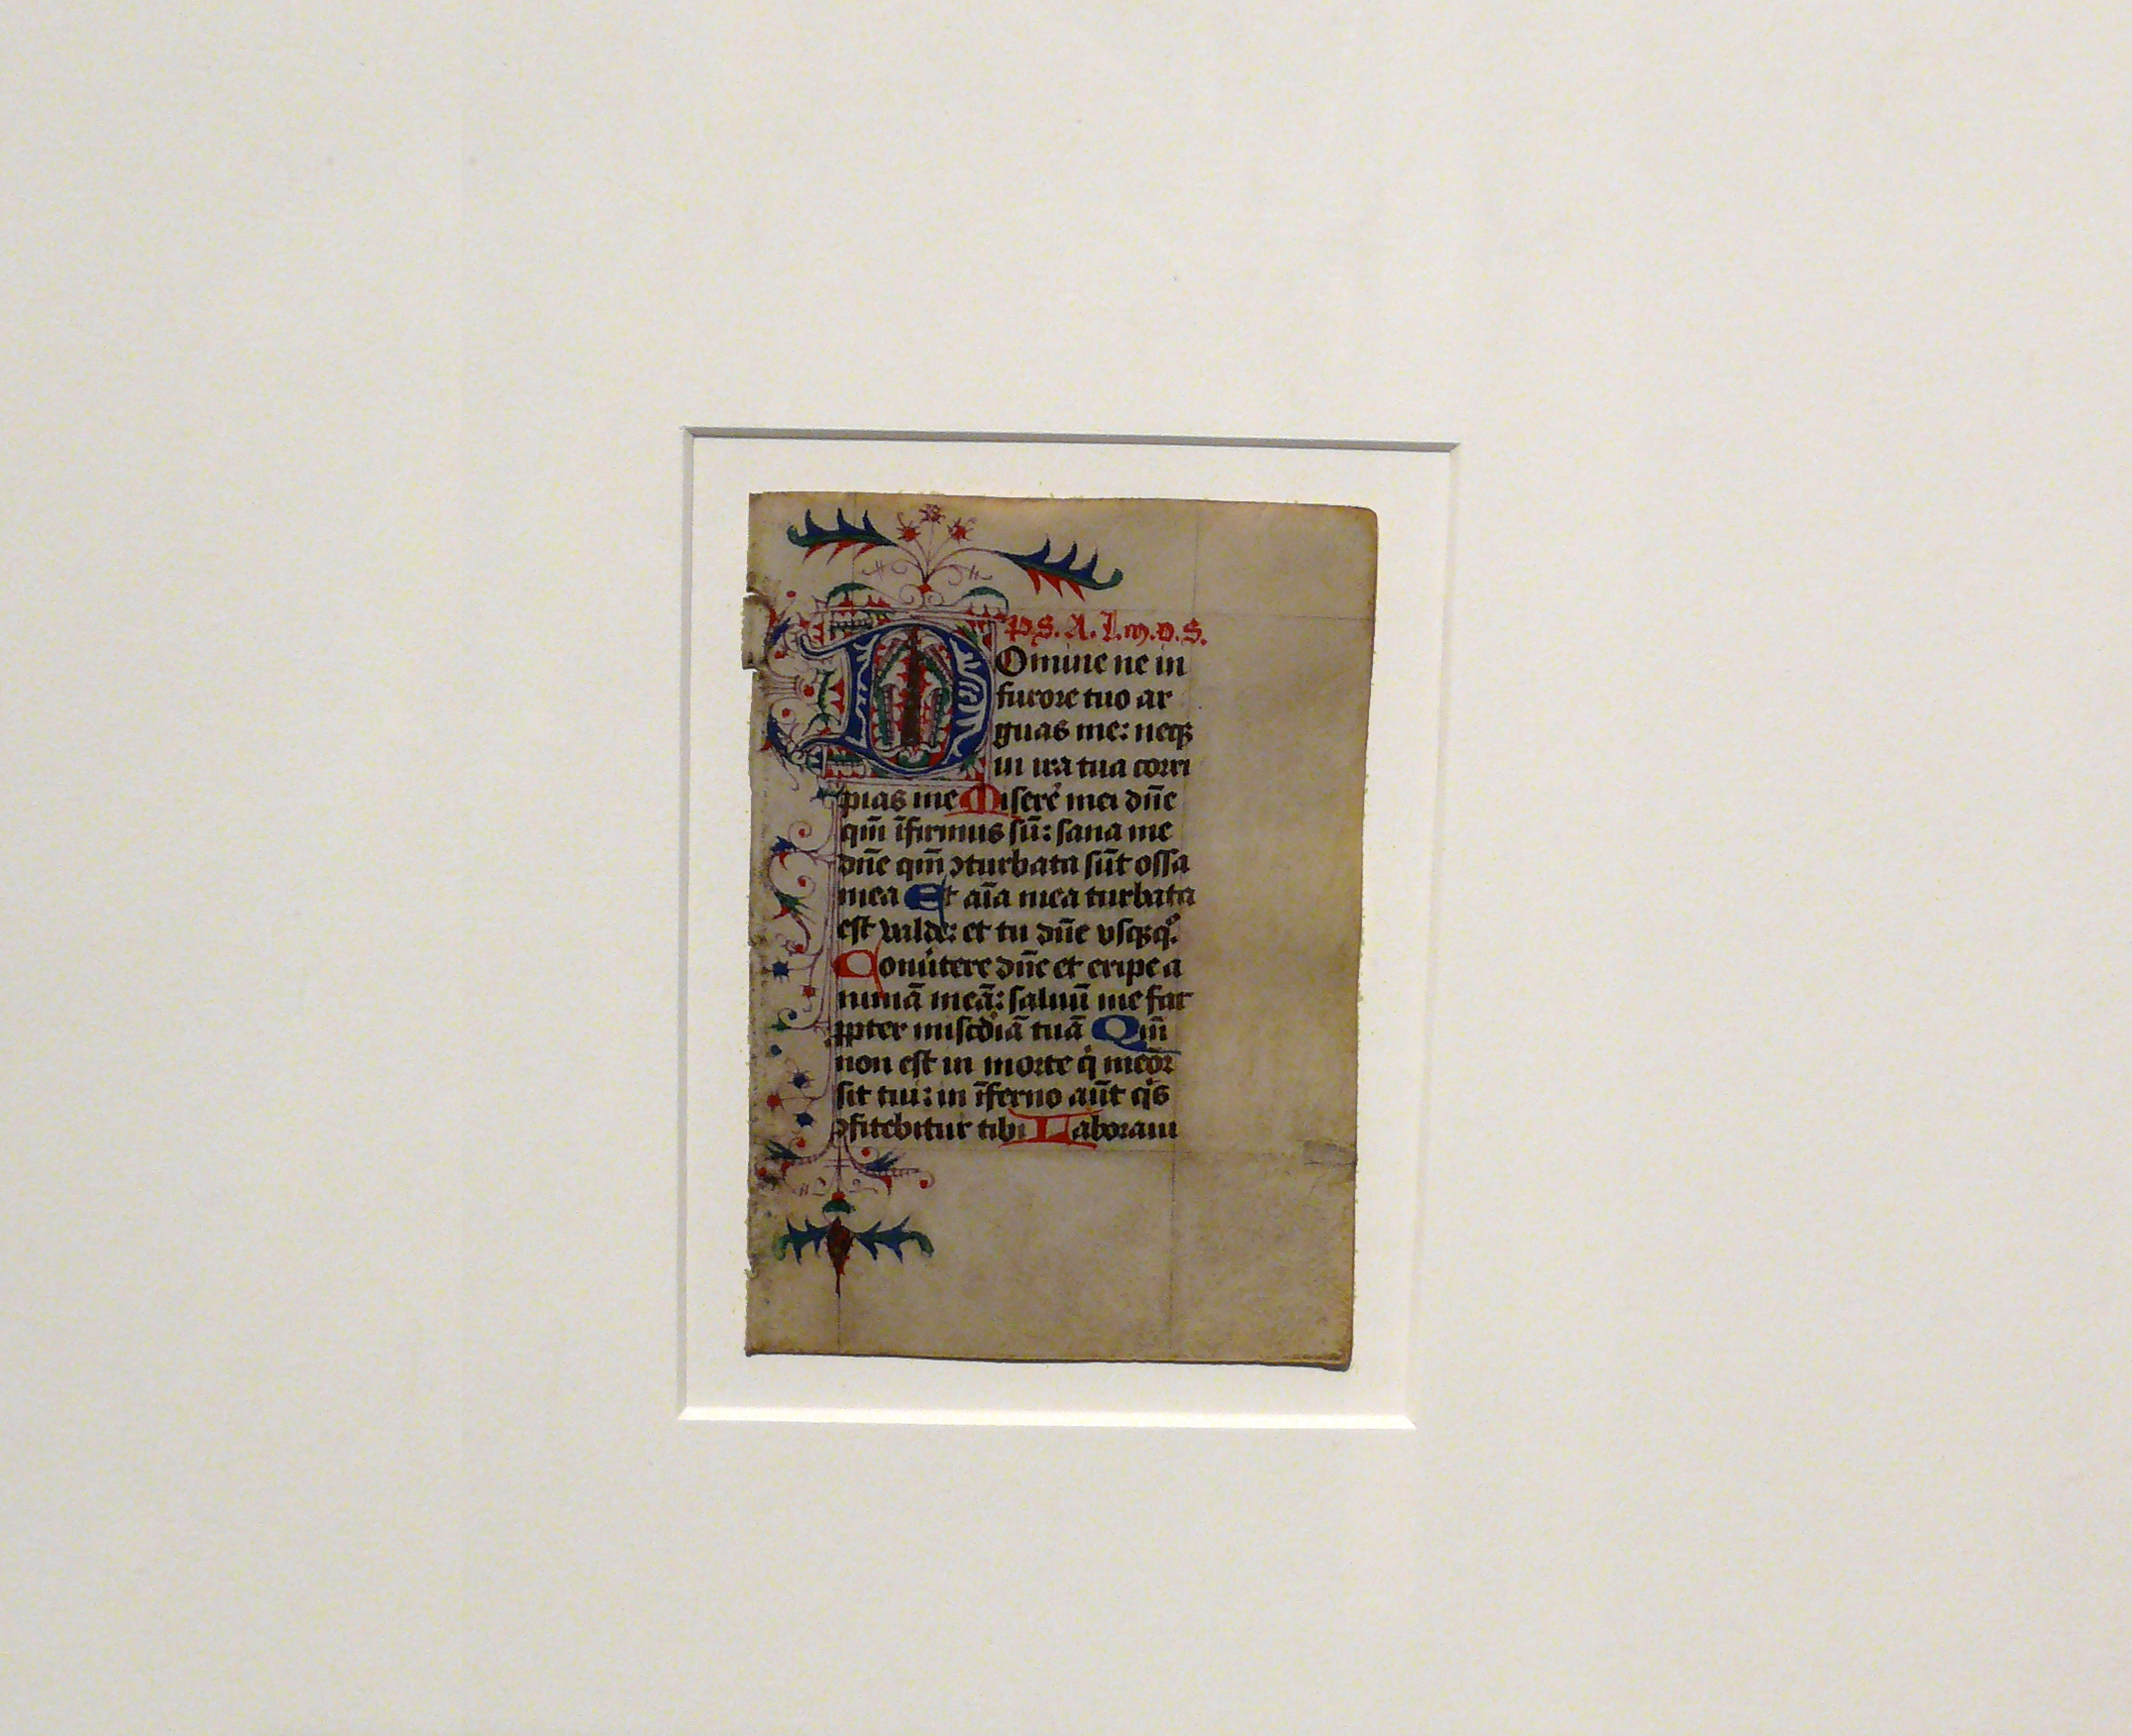 P.S.A.L.M.V.S.
DOmine ne in
furore tuo ar
guas me: neqꝫ
in ira tua corri
pias me Miserē mei dn̄e
qm̄ īfirmus sū: sana me
dn̄e qm̄ ꝯturbata sūt ossa
mea Et aīa mea turbata
est valde: et tu dn̄e vsqꝫq̊.
Conūtere dn̄e et eripe a
nimā meā: saluū me fac
ꝓpter misc̄diā tuā Qm̄
non est in morte q̇ meōr
sit tui: in īferno aūt q̇s
ꝯfitebitur tibi Laboraui